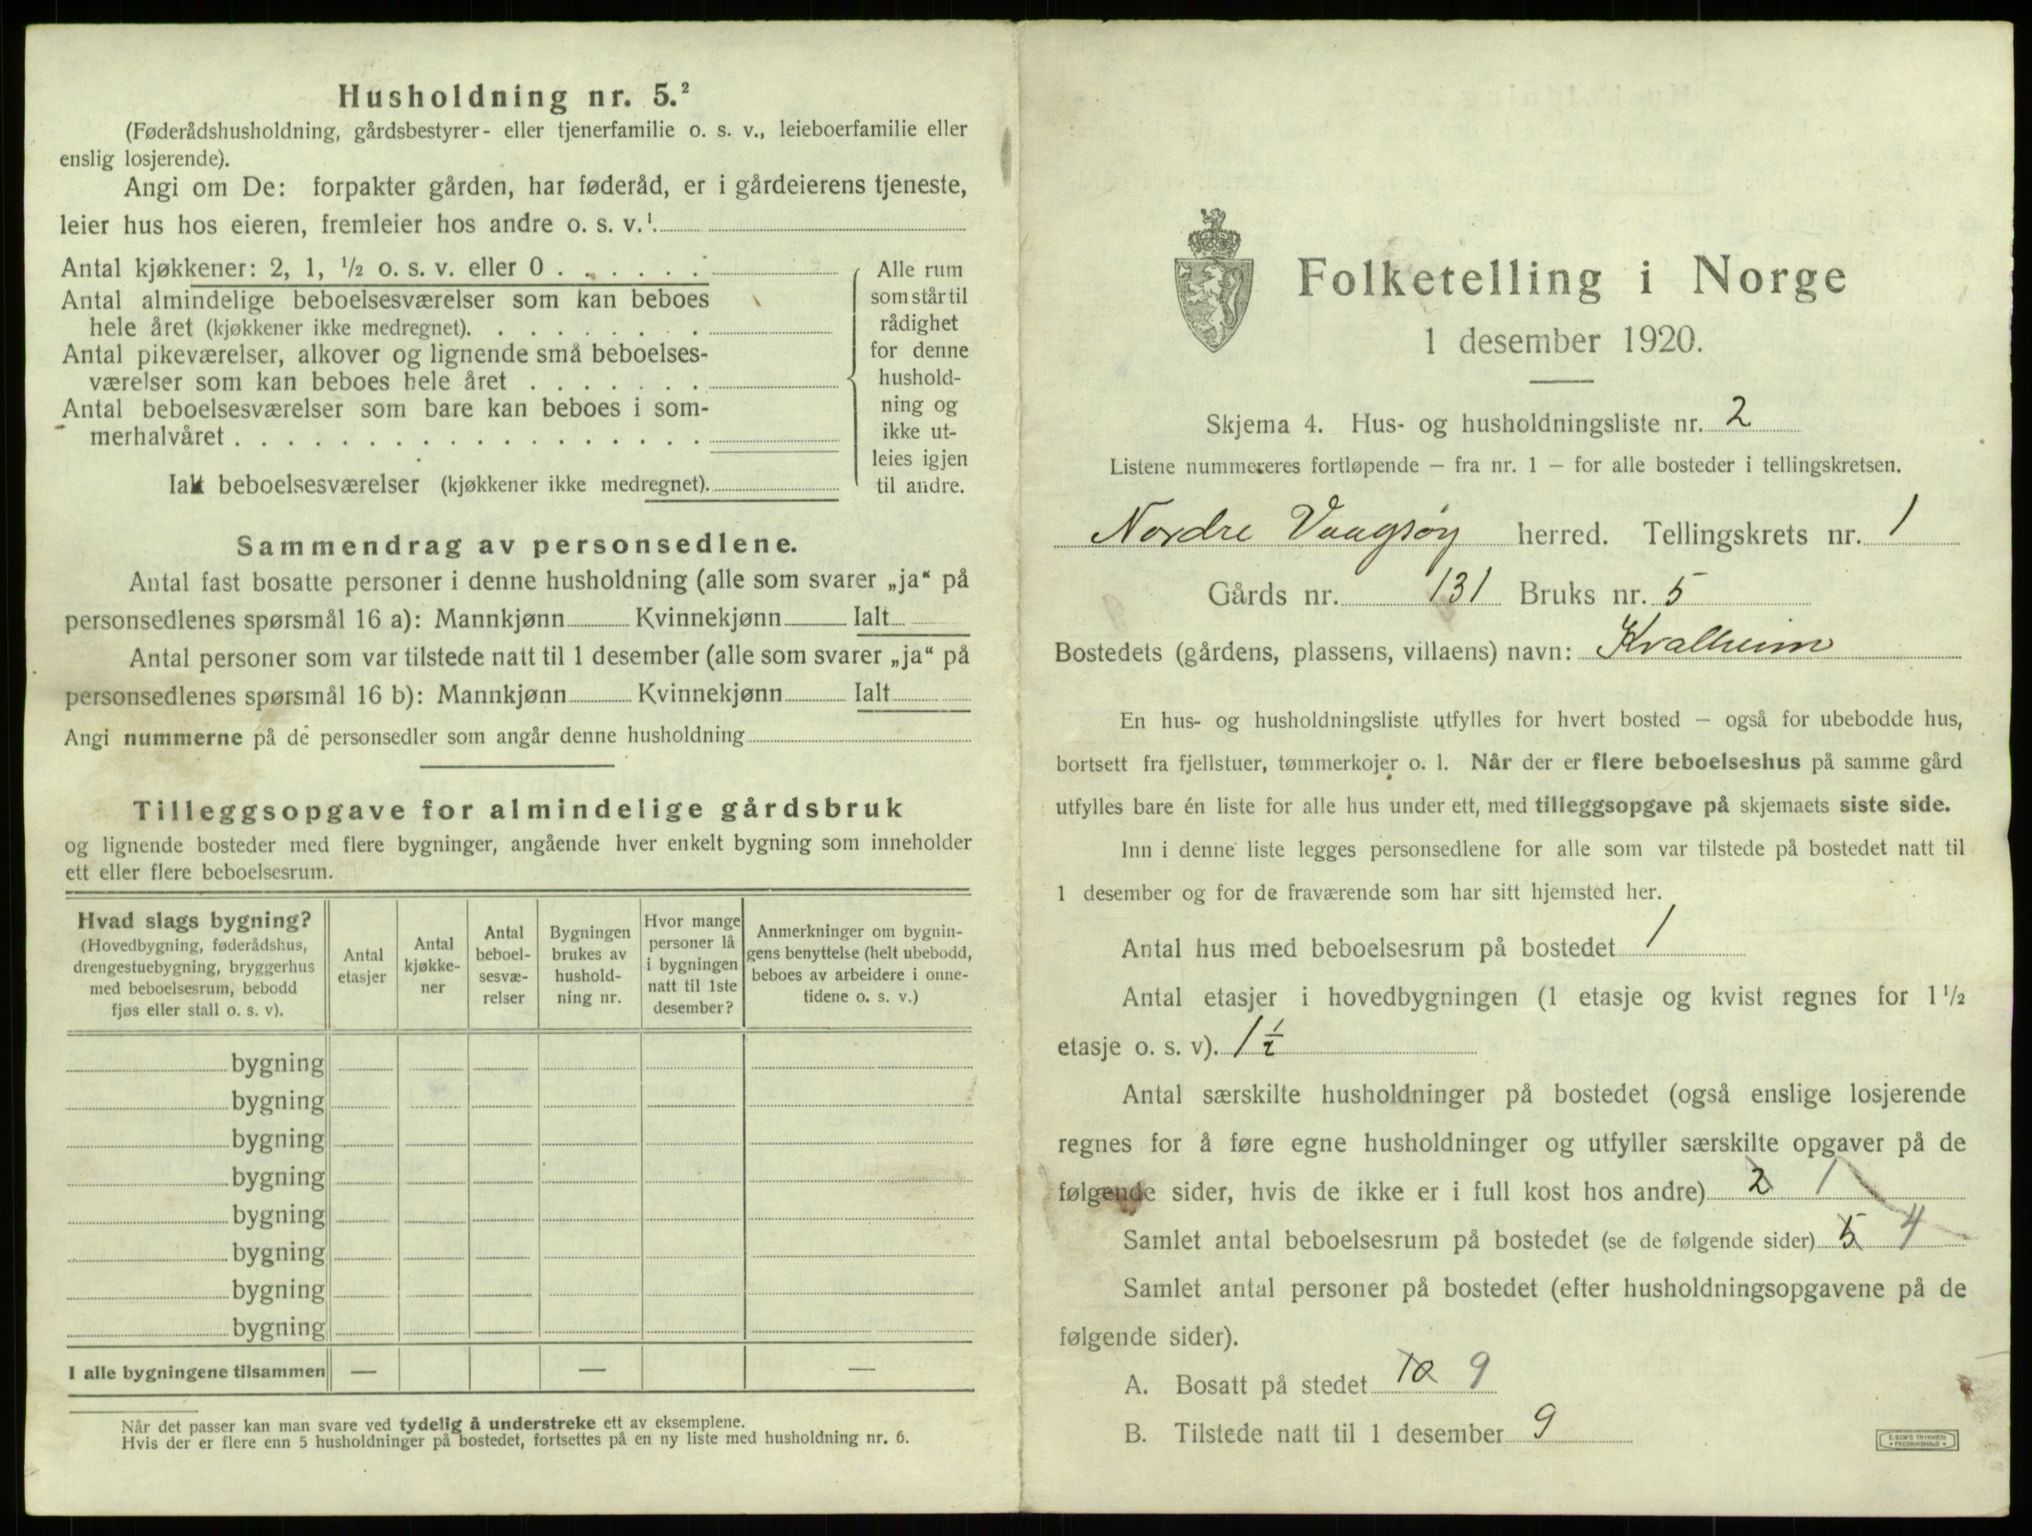 Husholdning nr. 5.²
(Føderådshusholdning, gårdsbestyrer- eller tjenerfamilie o. s. v., leieboerfamilie eller
enslig losjerende).
Angi om De: forpakter gården, har føderåd, er i gårdeierens tjeneste,
leier hus hos eieren, fremleier hos andre o. s. v.¹.
Antal kjøkkener: 2, 1, ½ o. s. v. eller 0 . . . . . .
Antal almindelige beboelsesværelser som kan beboes
hele året (kjøkkener ikke medregnet). . . . . . . . .
Antal pikeværelser, alkover og lignende små beboelses-
værelser som kan beboes hele året . . . . . . .
Antal beboelsesværelser som bare kan beboes i som-
merhalvåret . . . . . . . . . . . . . . . . . .
Ialt beboelsesværelser (kjøkkener ikke medregnet).
Alle rum
som står til
rådighet
for denne
hushold-
ning og
ikke ut-
leies igjen
til andre.
Sammendrag av personsedlene.
Antal fast bosatte personer i denne husholdning (alle som svarer „ja“ på
personsedlenes spørsmål 16 a): Mannkjønn Kvinnekjønn Ialt
Antal personer som var tilstede natt til 1 desember (alle som svarer „ja“ på
personsedlenes spørsmål 16 b): Mannkjønn Kvinnekjønn Ialt
Angi nummerne på de personsedler som angår denne husholdning
Tilleggsopgave for almindelige gårdsbruk
og lignende bosteder med flere bygninger, angående hver enkelt bygning som inneholder
ett eller flere beboelsesrum.
Hvad slags bygning?
(Hovedbygning, føderådshus,
drengestuebygning, bryggerhus
med beboelsesrum, bebodd
fjøs eller stall o. s. v).
Antal
etasjer
Antal
kjøkke-
ner
Antal
beboel-
sesvæ-
relser
Bygningen
brukes av
hushold-
ning nr.
Hvor mange
personer lå
i bygningen
natt til 1ste
desember?
Anmerkninger om bygnin-
gens benyttelse (helt ubebodd,
beboes av arbeidere i onne-
tidene o. s. v.)
bygning
bygning
bygning
bygning
bygning
bygning
bygning
bygning
I alle bygningene tilsammen — — —
Når det passer kan man svare ved tydelig å understreke ett av eksemplene.
Hvis der er flere enn 5 husholdninger på bostedet, fortsettes på en ny liste med husholdning nr. 6.
Folketelling i Norge
1 desember 1920.
Skjema 4. Hus- og husholdningsliste nr. 2
Listene nummereres fortløpende – fra nr. 1 – for alle bosteder i tellingskretsen.
Nordre Vaagsøy herred. Tellingskrets nr. 1
Gårds nr. 131 Bruks nr. 5
Bostedets (gårdens, plassens, villaens) navn: Kvalheim
En hus- og husholdningsliste utfylles for hvert bosted – også for ubebodde hus,
bortsett fra fjellstuer, tømmerkojer o. l. Når der er flere beboelseshus på samme gård
utfylles bare én liste for alle hus under ett, med tilleggsopgave på skjemaets siste side.
Inn i denne liste legges personsedlene for alle som var tilstede på bostedet natt til
1 desember og for de fraværende som har sitt hjemsted her.
Antal hus med beboelsesrum på bostedet 1
Antal etasjer i hovedbygningen (1 etasje og kvist regnes for 1½
etasje o. s. v). 1½
Antal særskilte husholdninger på bostedet (også enslige losjerende
regnes for å føre egne husholdninger og utfyller særskilte opgaver på de
følgende sider, hvis de ikke er i full kost hos andre) 2 1
Samlet antal beboelsesrum på bostedet (se de følgende sider) 5 4
Samlet antal personer på bostedet (efter husholdningsopgavene på de
følgende sider).
A. Bosatt på stedet 10 9
B. Tilstede natt til 1 desember 9
E. SEM'S TRYKKERI
• FREDRIKSHALD •